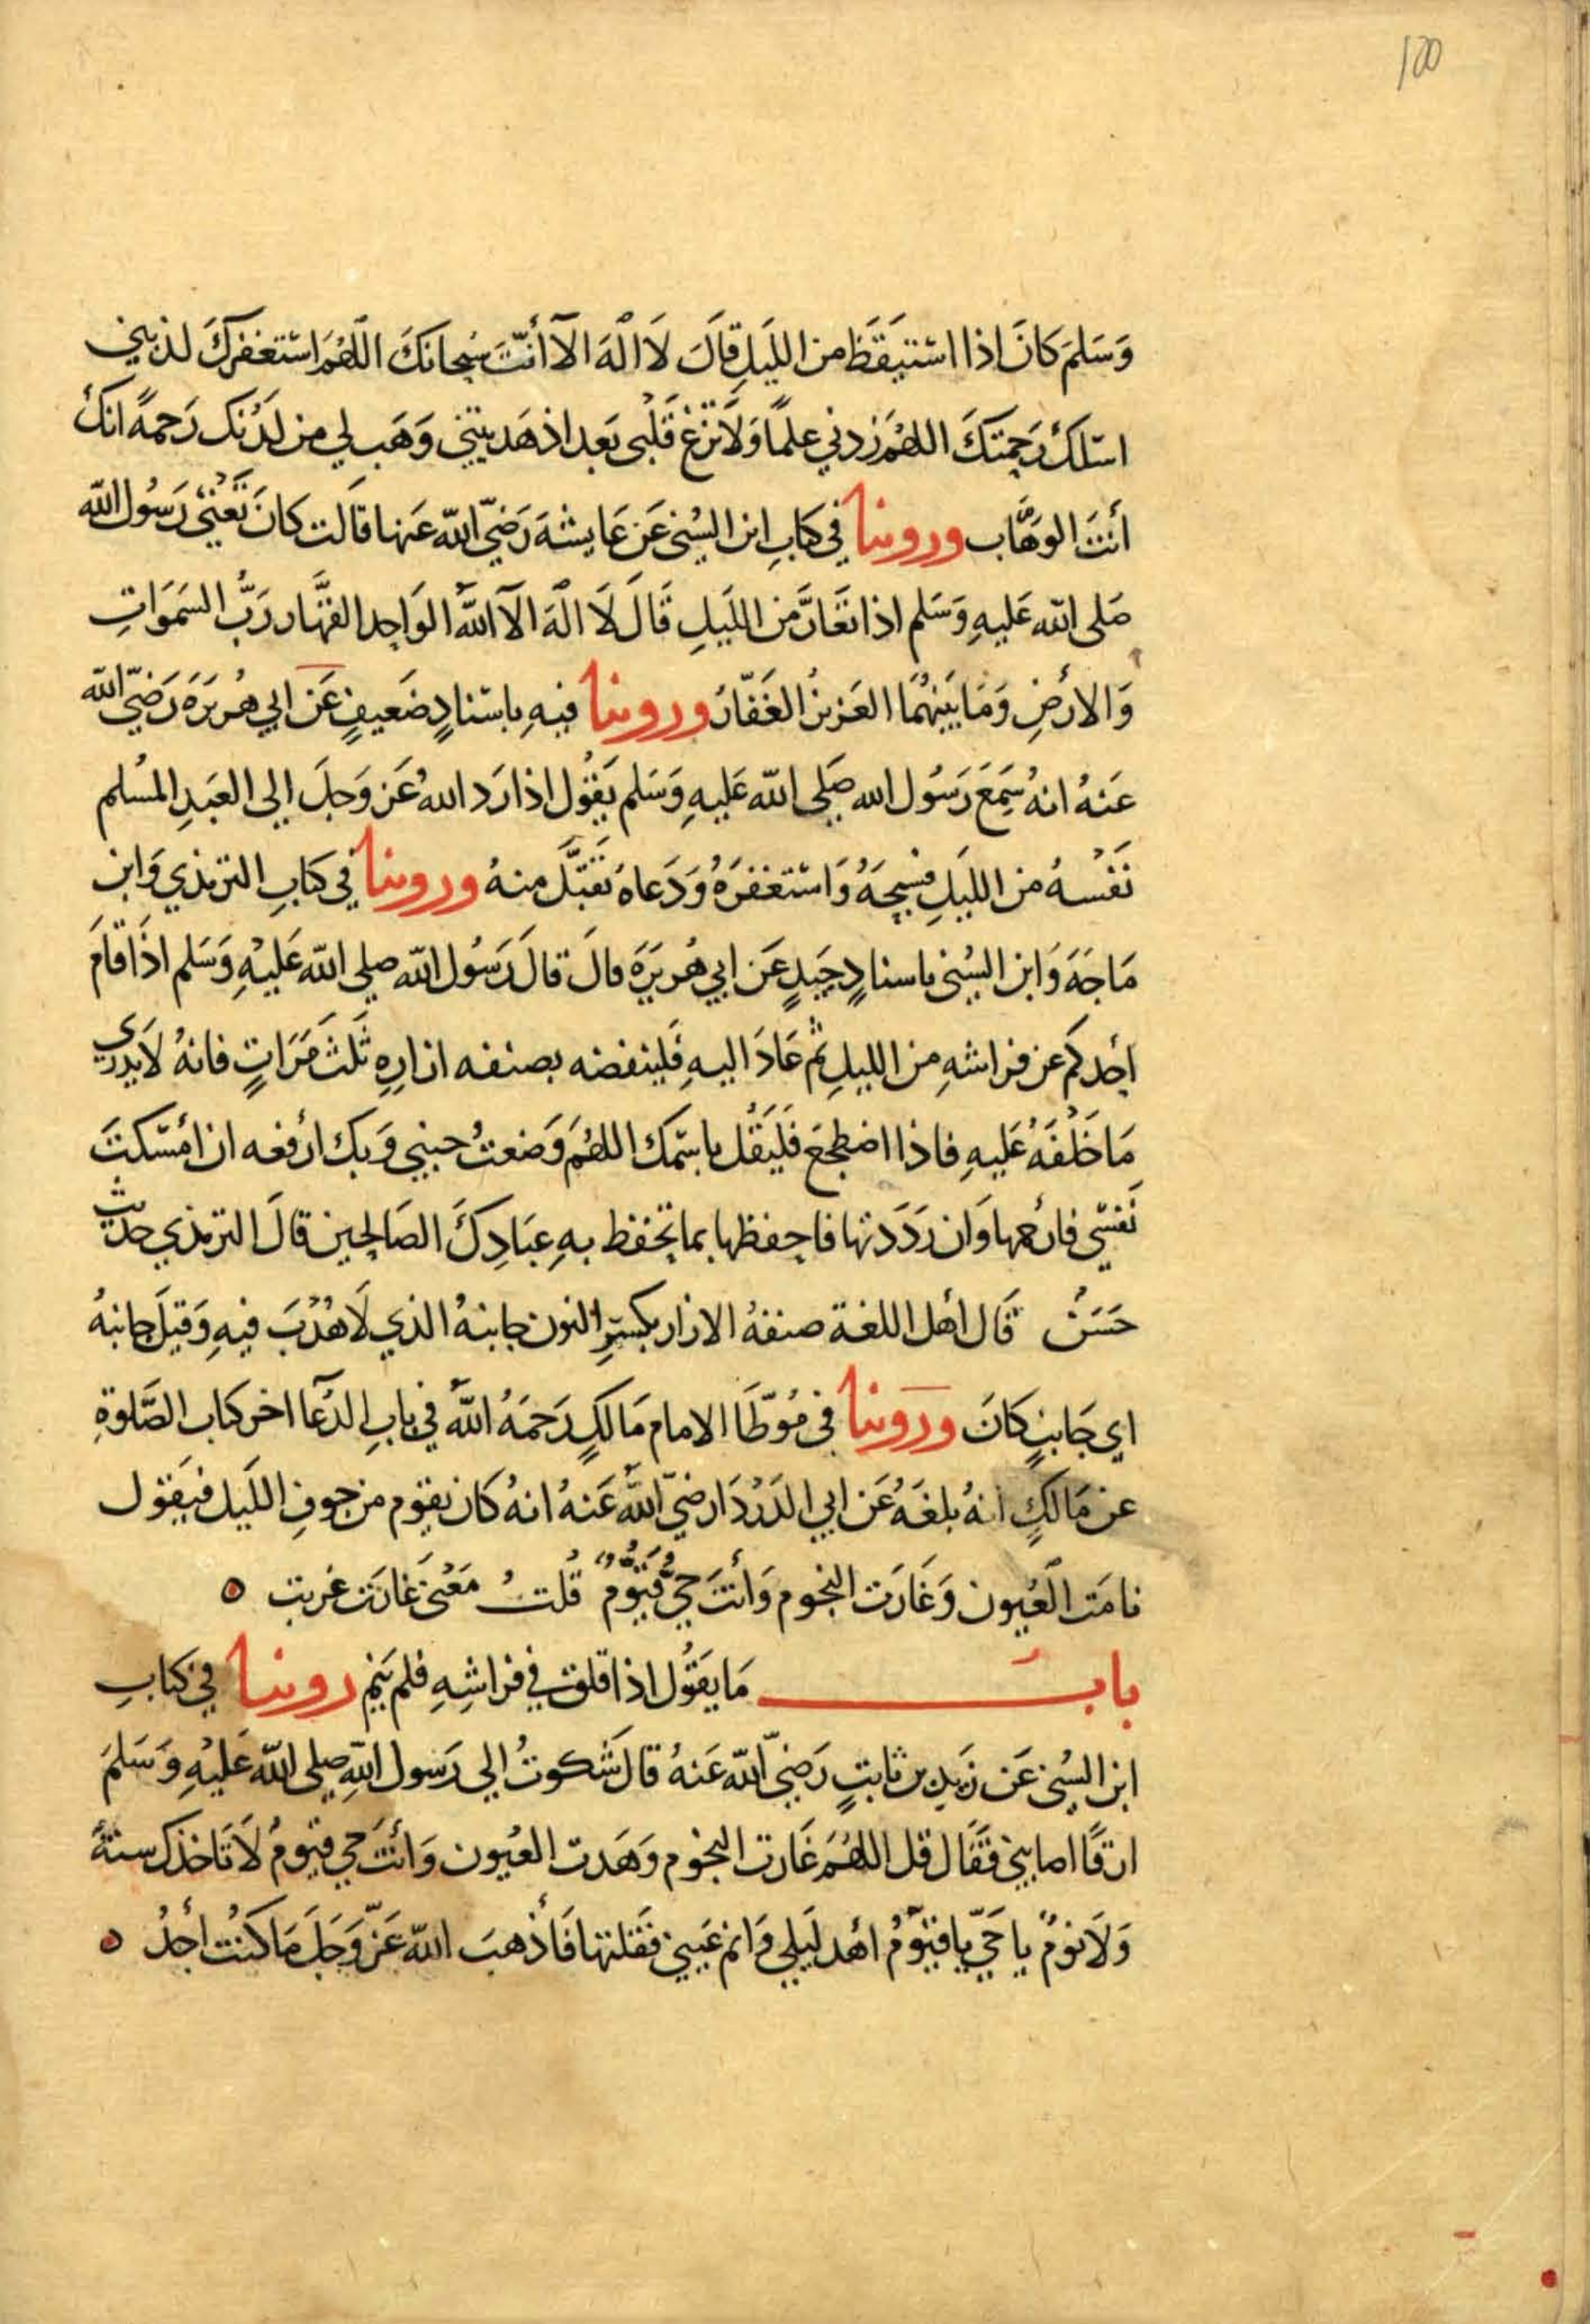 ١٥٥
وَسَلمَ كَانَ اذا استَيقَظَ من الليَلِ قَالَ لَا الٰهَ الآ أنتَ سُبحانَكَ اللهُمَ استغفركَ لذنبيٖ
اسئلكَ رَحمتكَ اللهُمَ زدني علمًا وَلَا تُزغ قَلبى بَعد اذ هَديتني وَهَب لي من لدُنك رَحمةً انكَ
أنتَ الوَهَّاب وروينا في كتابِ ابن السُنى عَن عَايشةَ رَضيَ الله عَنها قَالت كانَ تَعْنى رَسُول الله
صَلى الله عَليهِ وَسَلم اذا تَعَارَّ من الليَلِ قَالَ لَا الٰهَ الآ اللهُ الوَاحد القهَّار رَبُّ السَمَوَاتِ
وَالارْضِ وَمَا بَينهُمَا العَزيزُ الغَفّارُ وروينا فيهِ باسنادٍ ضَعيفٍ عَن ابي هُريرَة رَضيَ الله
عَنهُ انهُ سَمِعَ رَسُول الله صَلى الله عَليهِ وَسَلم يَقُول اذا رَد اللهُ عَز وَجلَ الى العَبدِ المُسلم
نَفْسهُ من الليَلِ فسَبحَهُ وَاستغفرَهُ وَدَعاهُ تَقبَّل منهُ وروينا في كتابِ الترمذي وَابن
مَاجَهَ وَابن السُنى باسنادٍ جَيدٍ عَن ابي هُريرَة قالَ قالَ رَسُول الله صلى الله عَليْهِ وَسَلم اذَا قامَ
أحدكم عن فراشهِ من الليلِ ثم عَادَ اليهِ فَلينفضه بصنفه ازارهِ ثَلثَ مَرَاتٍ فانهُ لَا يدري
مَا خَلْفَهُ عَليهِ فاذا اضطجعَ فَلَيَقُل باسمك اللهُمَ وَضعتُ جنبي وَبك ارفعه ان امْسَكتَ
نَفسي فارحمها وَان رَدَدَتها فاحفظها بما تحفظ بهِ عبَادِكَ الصَالحين قالَ الترمذي حديث
حَسَنٌ قَال أهل اللغة صنفهُ الازار بكسرِ النون جانبهُ الذي لَا هُدْبَ فيهِ وَقيلَ جانبهُ
اي جَانبٍ كانَ وَرَوينا فى مُوطَا الامام مَالكٍ رَحمَهُ اللهُ في بابِ الدُعَا اخر كتاب الصَّلوةِ
عن مَالكٍ انهُ بلغَهُ عَن ابي الدَرْدَا رضيَ اللهُ عَنهُ انهُ كان يقوم من جوفِ اللَيل فيَقول
نامَت العُيون وَغَارَت النجوم وَأنتَ حيٌّ قَيُّومٌ قُلتُ مَعْنى غارَت غربت ٥
بابُ مَا يَقُول اذا قلق في فراشِهِ فلم يَنم روينا في كتابِ
ابن السُنى عَن زَيدِ بن ثابتٍ رَضيَ الله عَنهُ قالَ شَكوتُ الى رَسول اللهِ صلى الله عَليْهِ وَسَلمَ
ارقًا اصابنى فقَال قل اللهُمَ غَارت النجوم وَهَدت العُيون وَأنتَ حي قيومٌ لَا تَاخذك سنةٌ
وَلَا نومٌ يا حَيّ يا قيّومُ أهد لَيلي وَانم عَيني فقلتها فَأذهبَ الله عَزّ وَجَلَ مَا كنتُ أجدُ ٥